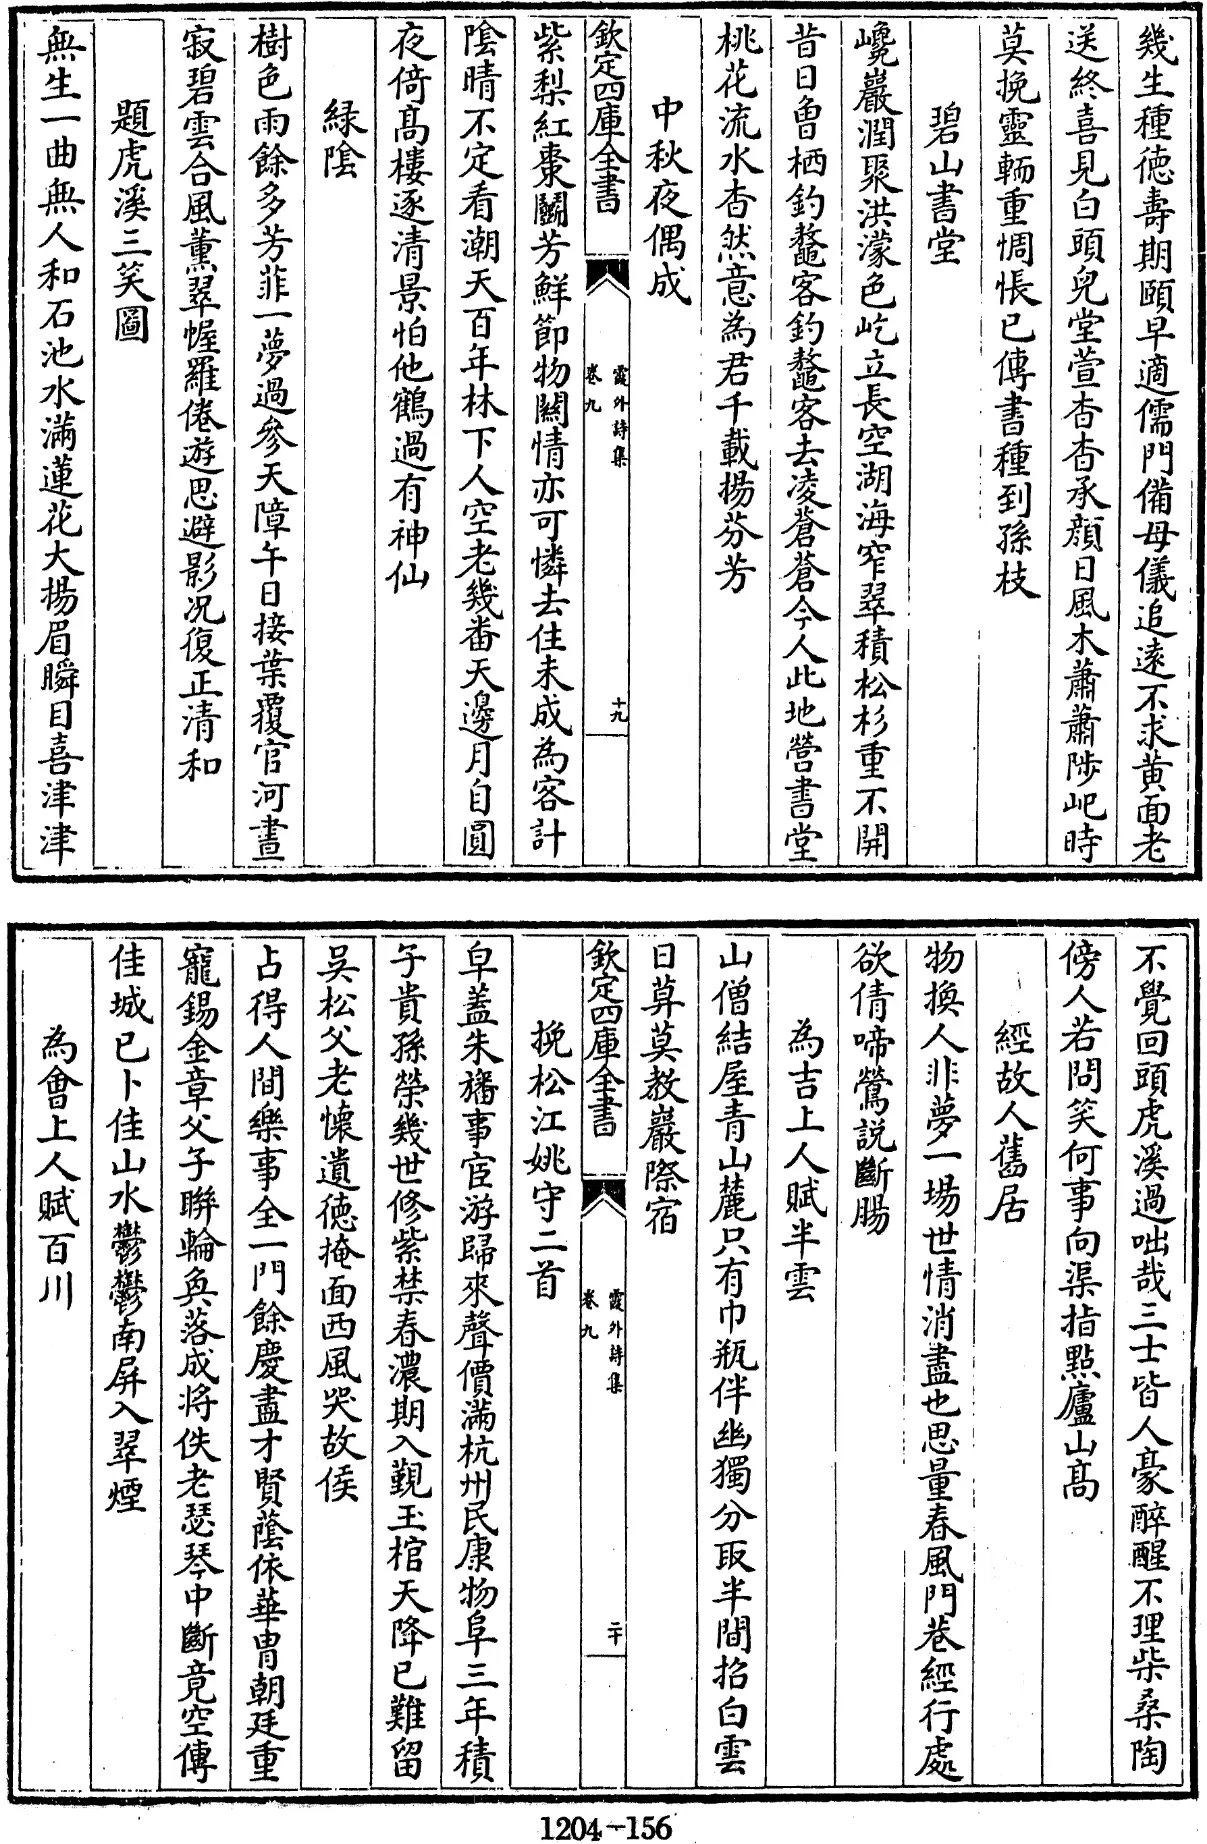 幾生種徳壽期頤早適儒門備母儀追逺不求黄面老
送終喜見白頭兒堂萱杳杳承顔日風木蕭蕭陟屺時
莫挽靈輀重惆悵已傳書種到孫枝
碧山書堂
巉巖潤聚洪濛色屹立長空湖海窄翠積松杉重不開
昔日魯栖釣鼇客釣鼇客去凌蒼蒼今人此地營書堂
桃花流水杳然意為君千載揚芬芳
中秋夜偶成
欽定四庫全書
霞外詩集
卷九
十九
紫梨紅棗鬬芳鮮節物闗情亦可憐去住未成為客計
隂晴不定看潮天百年林下人空老幾番天邊月自圓
夜倚髙樓逐清景怕他鶴過有神仙
緑隂
樹色雨餘多芳菲一夢過參天障午日接葉覆官河晝
寂碧雲合風薫翠幄羅倦遊思避影况復正清和
題虎溪三笑圖
無生一曲無人和石池水滿蓮花大揚眉瞬目喜津津
不覺回頭虎溪過咄哉三士皆人豪醉醒不理柴桑陶
傍人若問笑何事向渠指點廬山髙
經故人舊居
物換人非夢一塲世情消盡也思量春風門巷經行處
欲倩啼鶯説斷腸
為吉上人賦半雲
山僧結屋青山麓只有巾瓶伴幽獨分取半間招白雲
日莫莫教巖際宿
欽定四庫全書
霞外詩集
卷九
二十
挽松江姚守二首
皁蓋朱旛事宦游歸來聲價滿杭州民康物阜三年積
子貴孫榮幾世修紫禁春濃期入觐玉棺天降已難留
吳松父老懐遺徳掩面西風哭故侯
占得人間樂事全一門餘慶盡才賢蔭依華胄朝廷重
寵錫金章父子聨輪奐落成将佚老瑟琴中斷竟空傳
佳城已卜佳山水鬱鬱南屏入翠煙
為會上人賦百川
1204-156